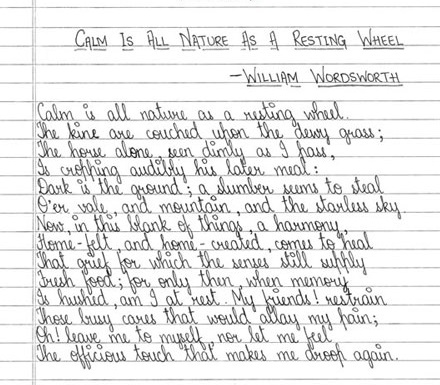 CALM IS ALL NATURE AS A RESTING WHEEL
—WILLIAM WORDSWORTH
Calm is all nature as a resting wheel.
The kine are couched upon the dewy grass;
The horse alone, seen dimly as I pass,
Is cropping audibly his later meal:
Dark is the ground; a slumber seems to steal
O'er vale, and mountain, and the starless sky
Now, in this blank of things, a harmony,
Home-felt, and home-created, comes to heal
That grief for which the senses still supply
Fresh food; for only then, when memory
Is hushed, am I at rest. My friends! restrain
Those busy cares that would allay my pain;
Oh! leave me to myself, nor let me feel
The officious touch that makes me droop again.